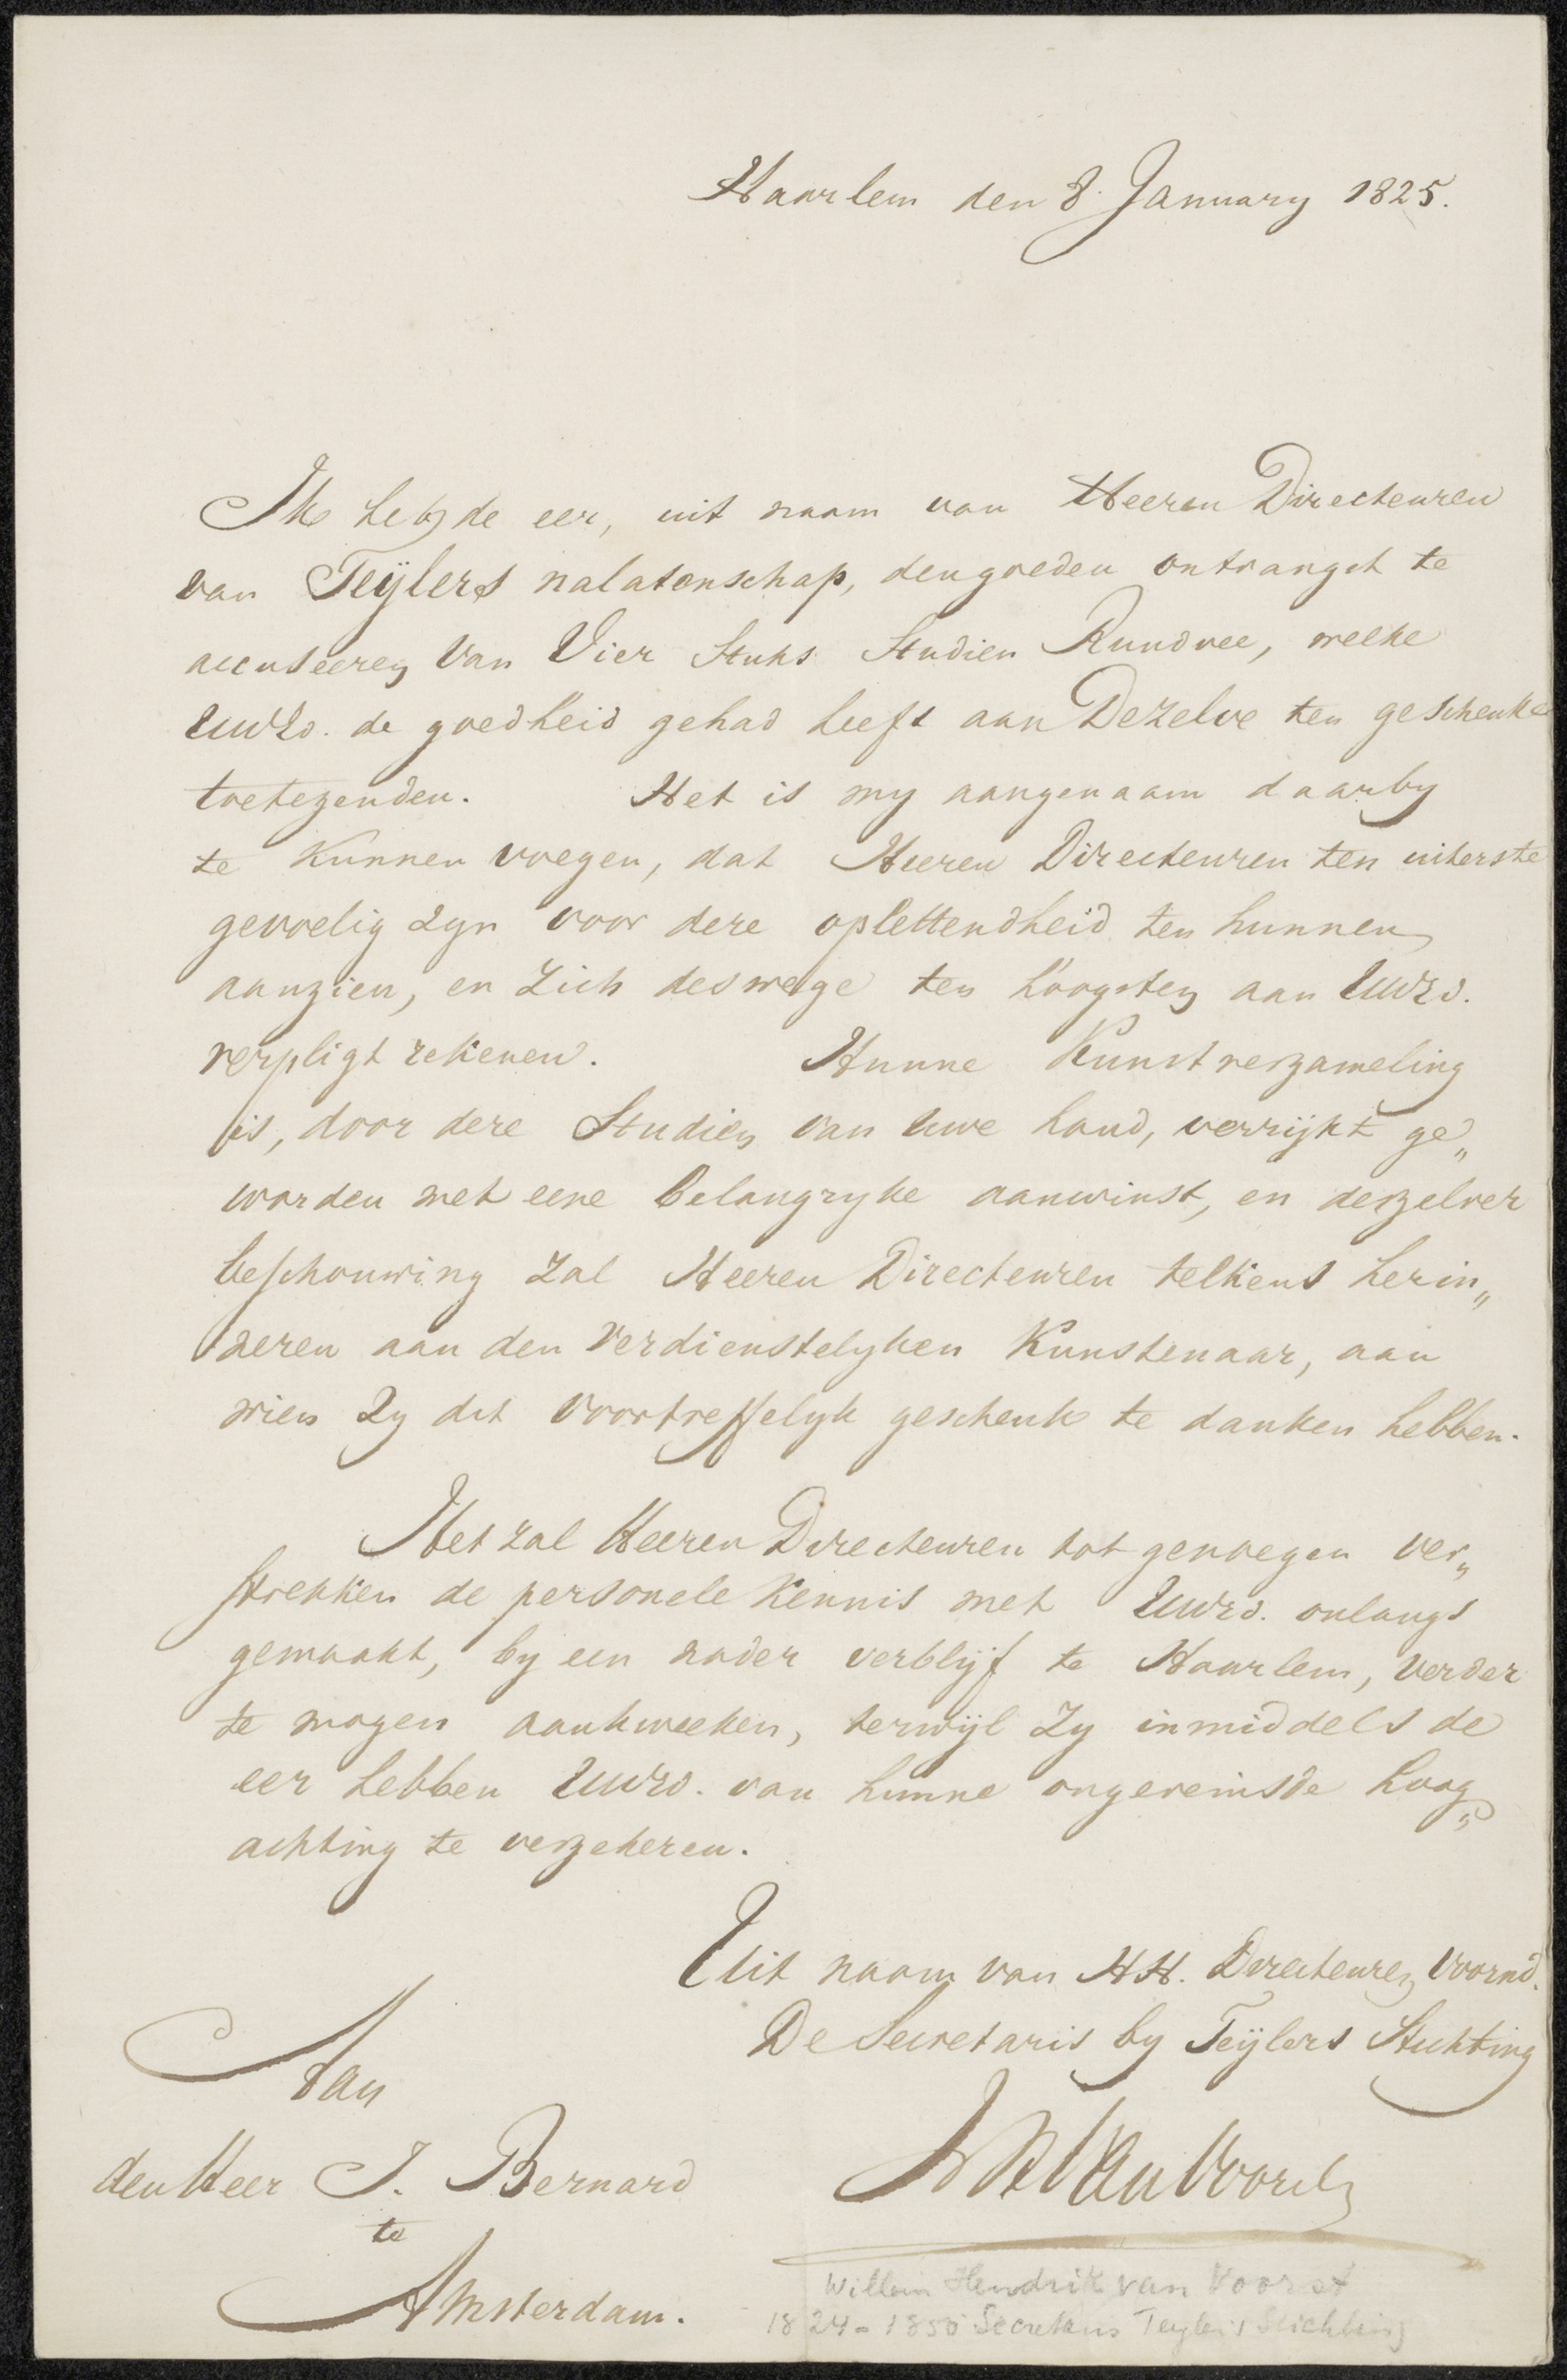 Haarlem den 8. January 1825.
Ik heb de eer, uit naam van Heeren Directeuren
van Teÿlers nalatenschap, den goeden ontvangst te
accuseeren van Vier Stuks Studien Rundvee, welke
UwEd. de goedheid gehad heeft aan Dezelve ten geschenke
toetezenden. Het is my aangenaam daarby
te kunnen voegen, dat Heeren Directeuren ten uiterste
gevoelig zyn voor deze oplettendheid ten hunnen
aanzien, en zich deswege ten hoogsten aan UwEd.
verpligt rekenen. Hunne Kunstverzameling
is, door deze Studien van uwe hand, verrijkt ge„
worden met eene belangryke aanwinst, en derzelver
beschouwing zal Heeren Directeuren telkens herin„
neren aan den verdienstelyken Kunstenaar, aan
wien zy dit voortreffelyk geschenk te danken hebben.
Het zal Heeren Directeuren tot genoegen ver„
strekken de personele kennis met UwEd. onlangs
gemaakt, by een nader verblijf te Haarlem, verder
te mogen aankweeken, terwijl zy inmiddels de
eer hebben UwEd. van hunne ongeveinsde hoog„
achting te verzekeren.
Uit naam van HH. Directeuren voornd.
De Secretaris by Teÿlers Stichting
WH Van Voorst
Aan
den Heer J. Bernard
te
Amsterdam.
Willem Hendrik van Voorst
1824-1850 Secretaris Teylers Stichting